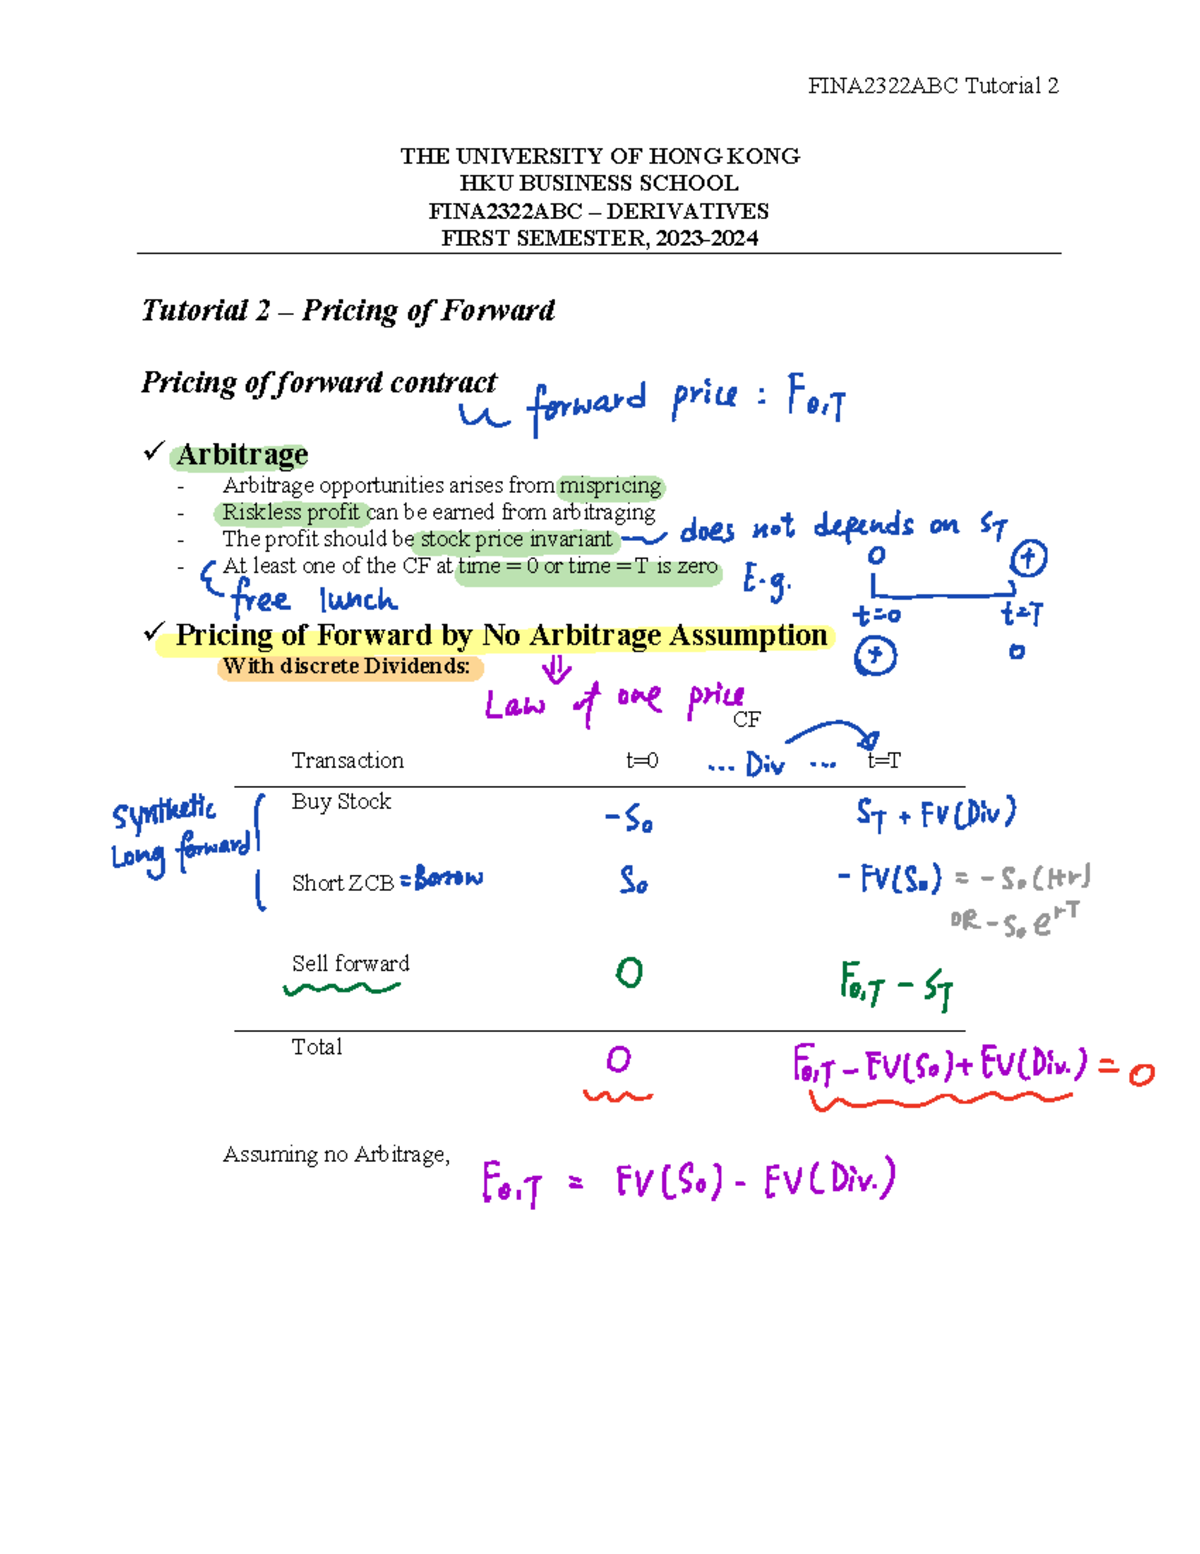 FINA2322ABC Tutorial 2
THE UNIVERSITY OF HONG KONG
HKU BUSINESS SCHOOL
FINA2322ABC – DERIVATIVES
FIRST SEMESTER, 2023-2024
Tutorial 2 – Pricing of Forward
Pricing of forward contract
forward price : F₀,T
✓ Arbitrage
- Arbitrage opportunities arises from mispricing
- Riskless profit can be earned from arbitraging
- The profit should be stock price invariant
does not depends on S_T
- At least one of the CF at time = 0 or time = T is zero
free lunch
E.g.
0 +
t=0 t=T
+ 0
✓ Pricing of Forward by No Arbitrage Assumption
With discrete Dividends:
⇓
Law of one price
CF
Transaction t=0 ... Div ... t=T
Synthetic
Long forward
Buy Stock -S₀ S_T + FV(Div)
Short ZCB = Borrow S₀ - FV(S₀) = - S₀(1+r)
OR - S₀ e^rT
Sell forward 0 F₀,T - S_T
Total 0 F₀,T - FV(S₀) + FV(Div.) = 0
Assuming no Arbitrage, F₀,T = FV(S₀) - FV(Div.)